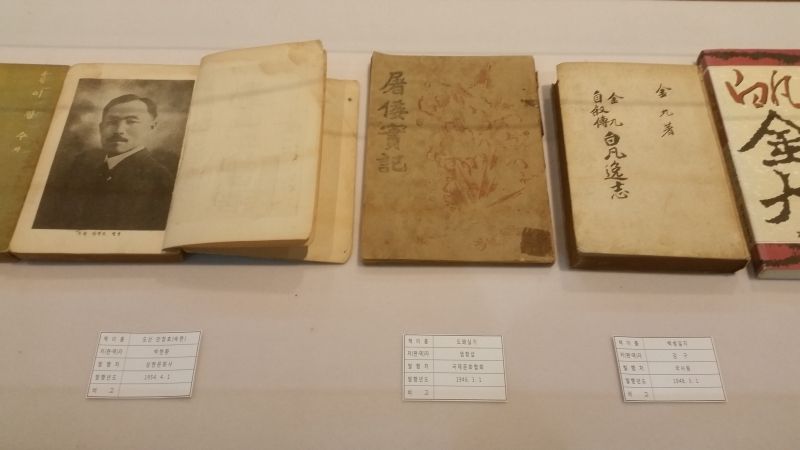 屠倭實記
金九著
金九
自叙傳 白凡逸志
白凡
金
책 이 름 도산 안창호
저(편·역)자 박현환
발 행 처 삼협문화사
발행년도 1954. 4. 1
비 고
책 이 름 도왜실기
저(편·역)자 엄항섭
발 행 처 국제문화협회
발행년도 1946. 3. 1
비 고
책 이 름 백범일지
저(편·역)자 김 구
발 행 처 국사원
발행년도 1948. 3. 1
비 고